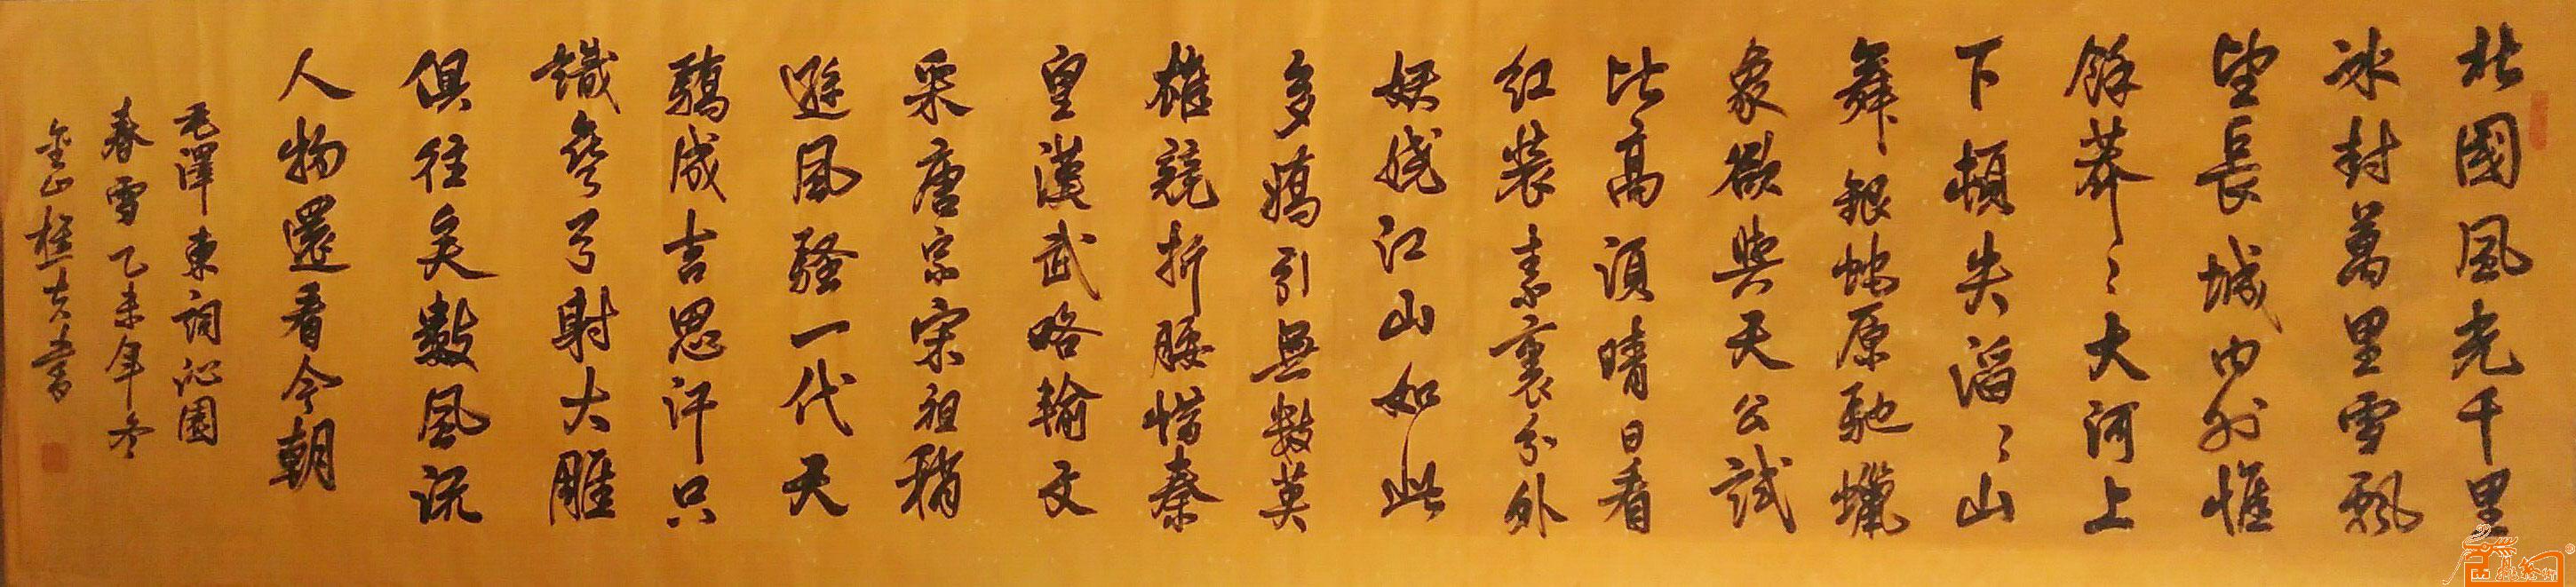 北國風光千里
冰封萬里雪飄
望長城內外惟
餘莽〻大河上
下頓失滔〻山
舞銀蛇原馳蠟
象欲與天公試
比高須晴日看
紅裝素裹分外
妖嬈江山如此
多嬌引無數英
雄競折腰惜秦
皇漢武略輸文
采唐宗宋祖稍
遜風騷一代天
驕成吉思汗只
識彎弓射大雕
俱往矣數風流
人物還看今朝
毛澤東詞沁園
春雪乙未年冬
金山書